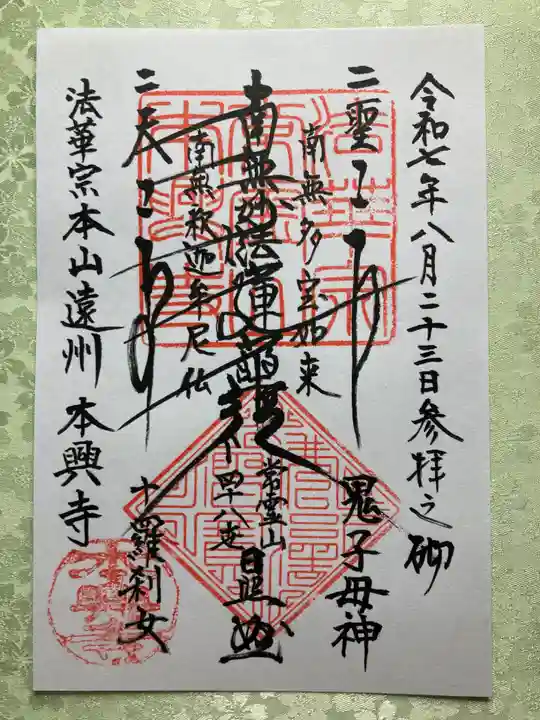 令和七年八月二十三日参拝之砌
二聖
鬼子母神
南無多宝如来
南無妙法蓮華経
常霊山
四十八世
日照
南無釈迦牟尼仏
二天
十羅刹女
法華宗本山遠州 本興寺